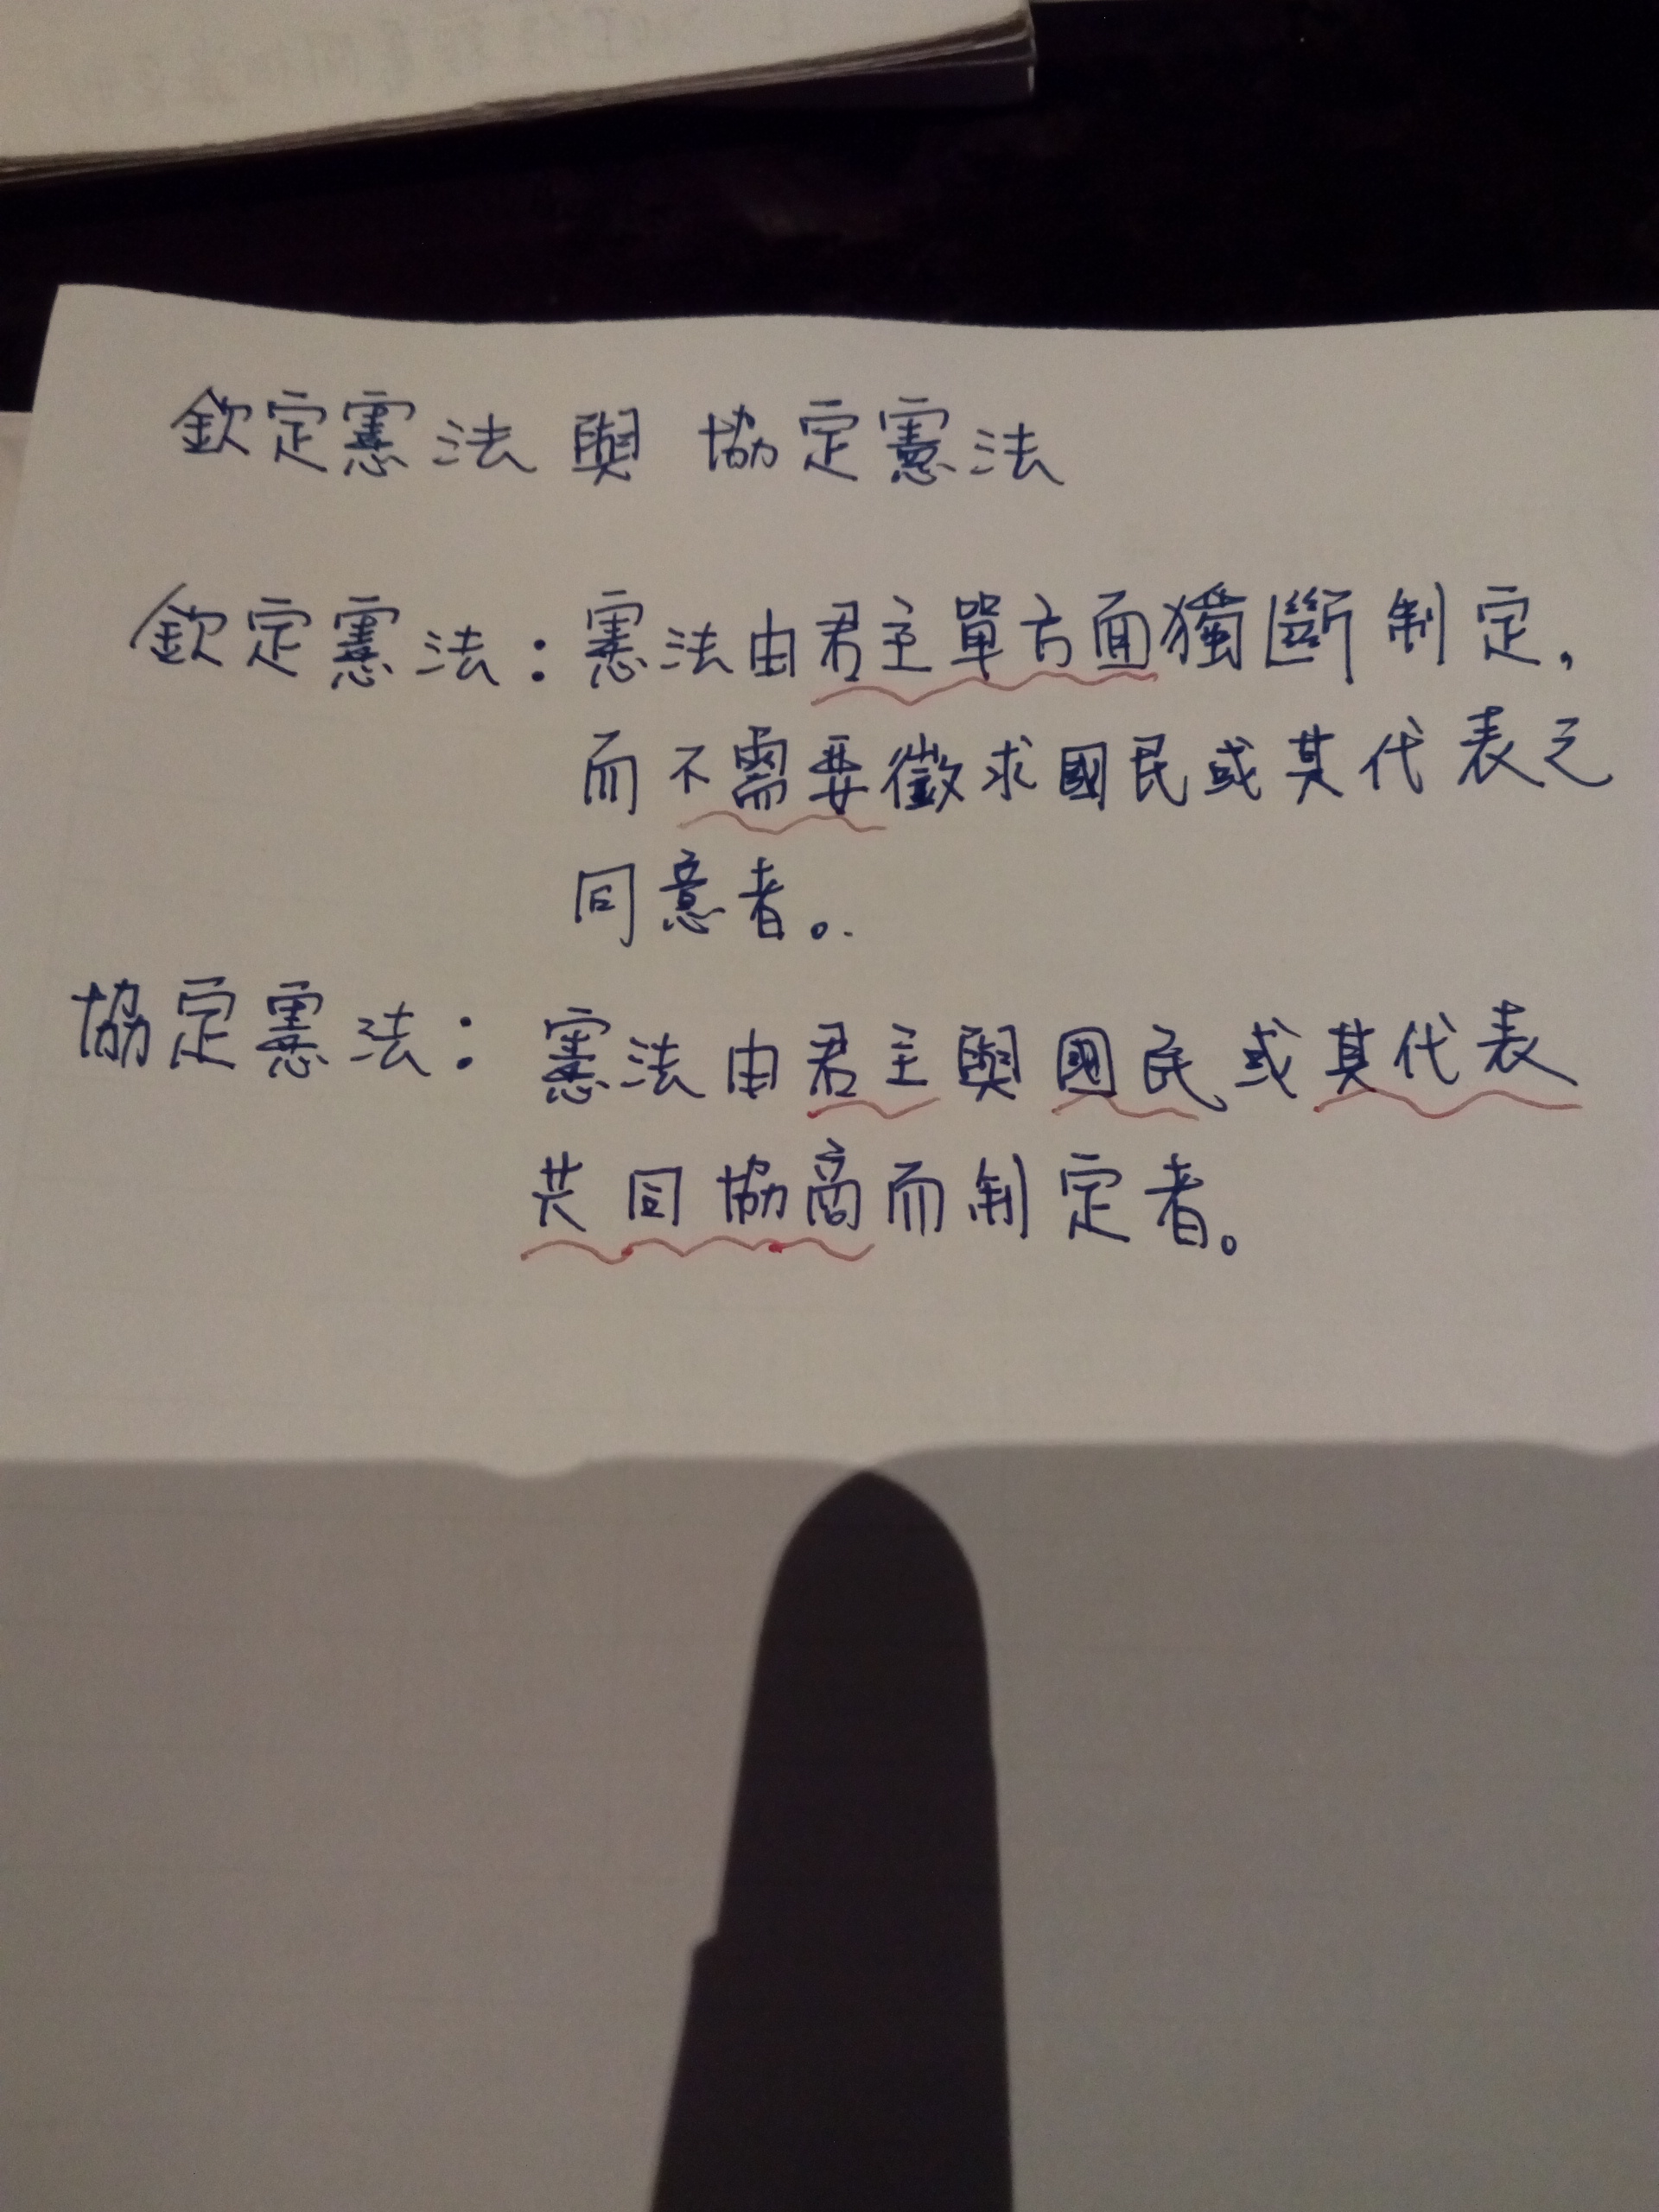 欽定憲法與協定憲法
欽定憲法：憲法由君主單方面獨斷制定，
而不需要徵求國民或其代表之
同意者。
協定憲法：憲法由君主與國民或其代表
共同協商而制定者。